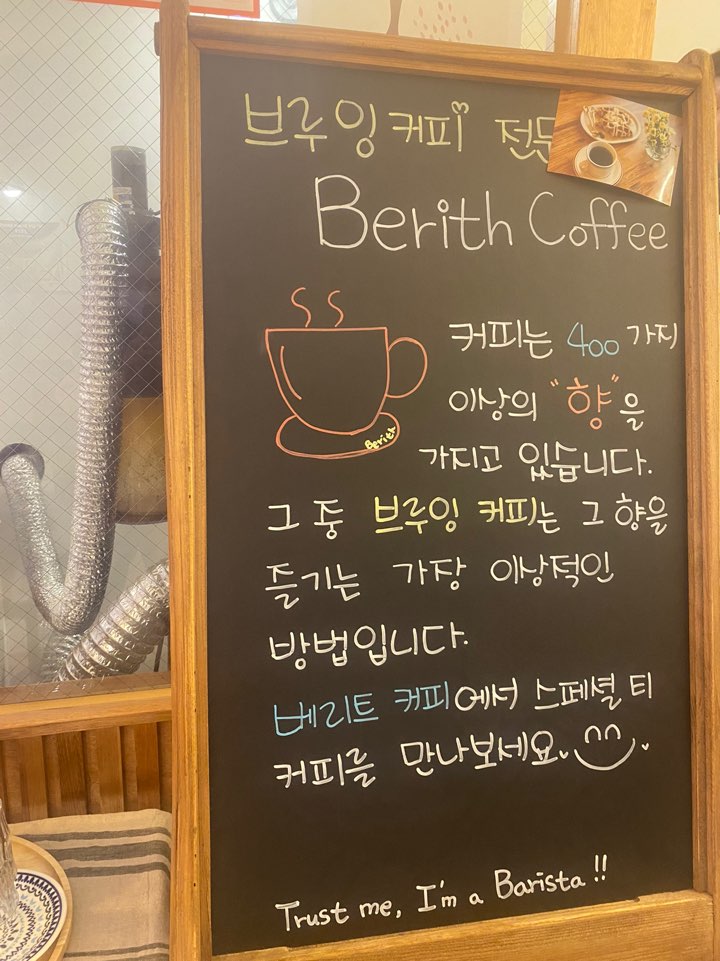 브루잉 커피 전문
Berith Coffee
Berith
커피는 400 가지
이상의 "향"을
가지고 있습니다.
그 중 브루잉 커피는 그 향을
즐기는 가장 이상적인
방법입니다.
베리트 커피에서 스페셜 티
커피를 만나보세요.
Trust me, I'm a Barista!!